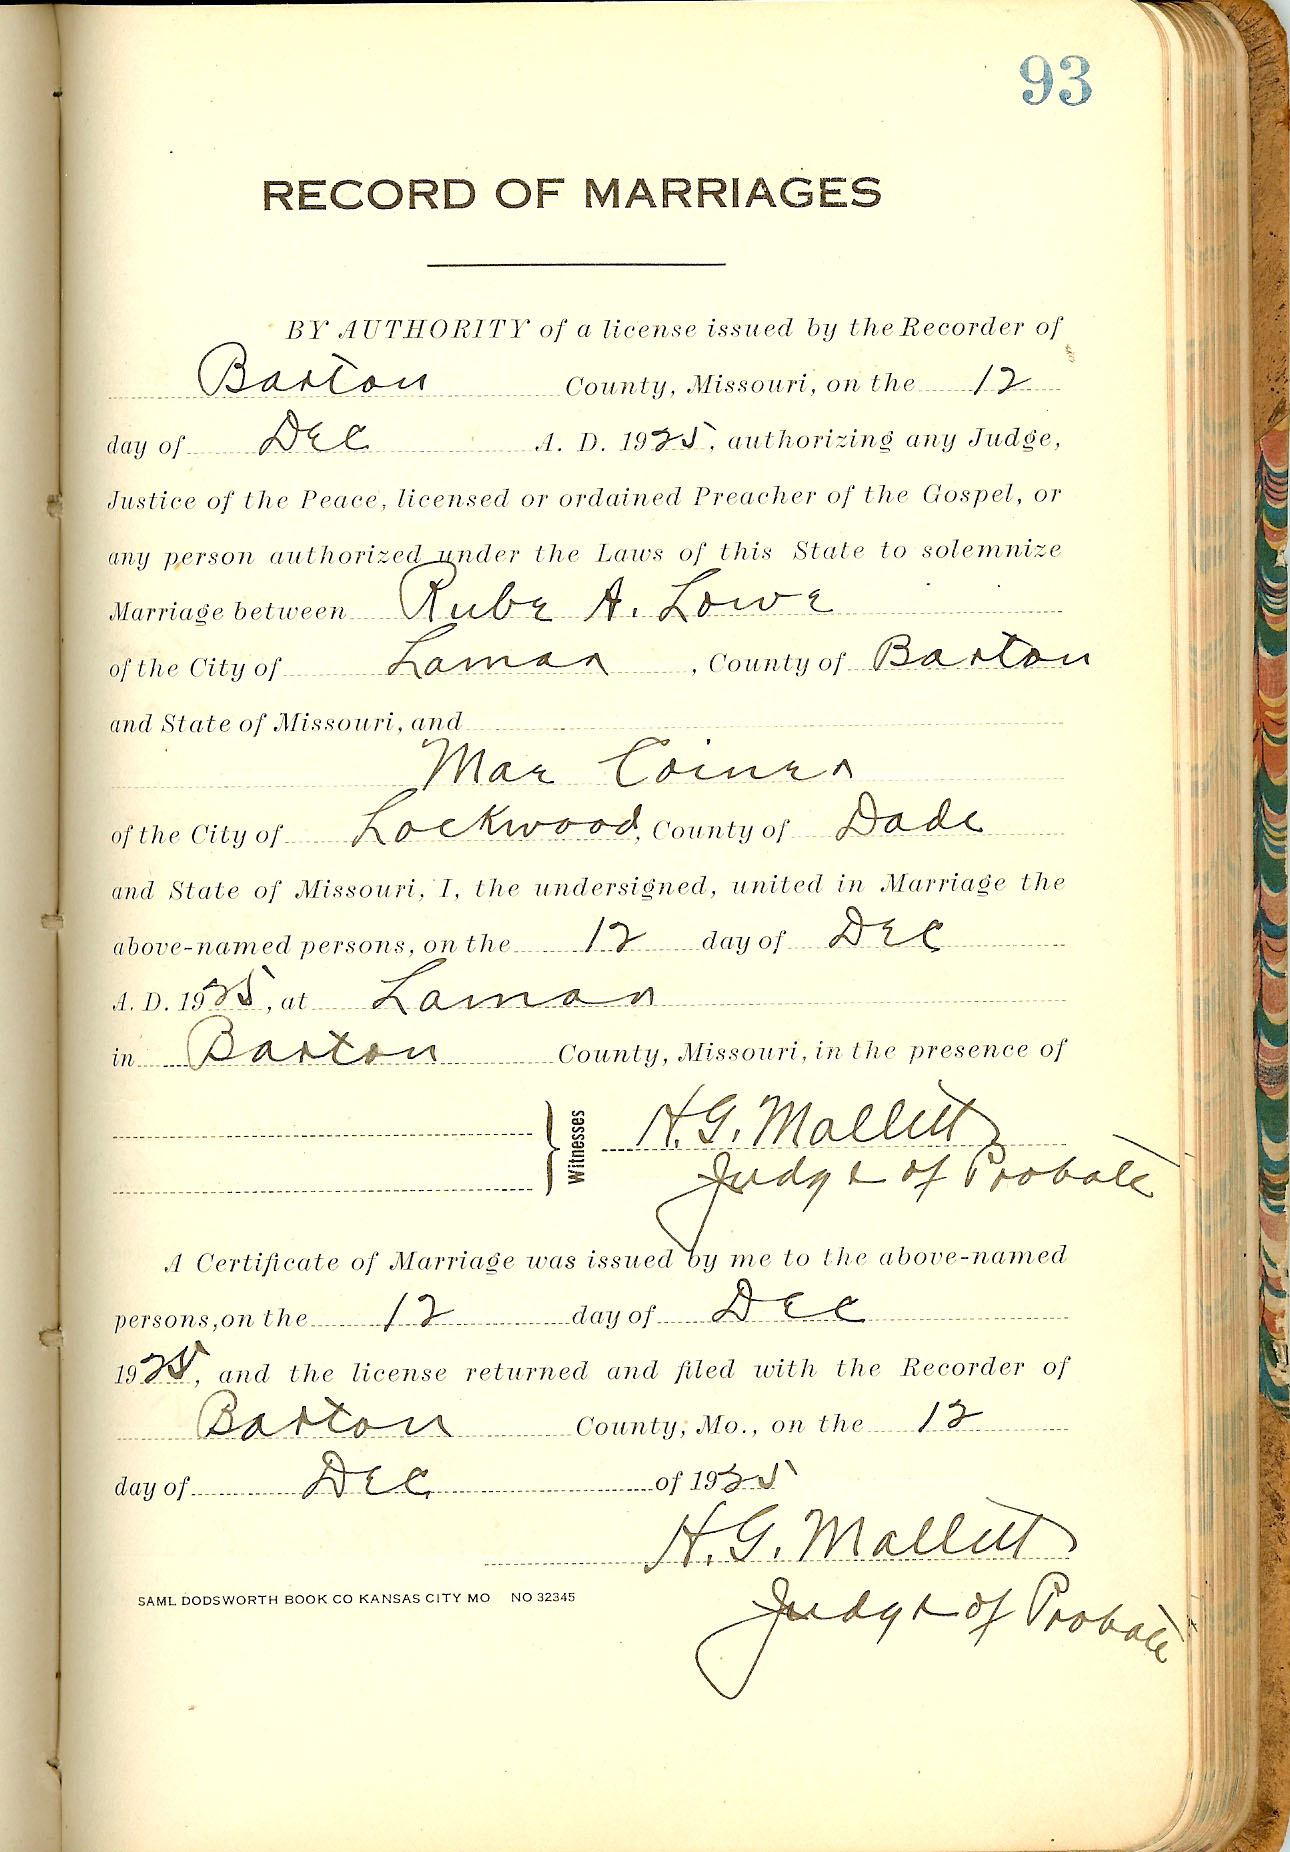 93
RECORD OF MARRIAGES
BY AUTHORITY of a license issued by the Recorder of
Barton County, Missouri, on the 12
day of Dec A. D. 1925, authorizing any Judge,
Justice of the Peace, licensed or ordained Preacher of the Gospel, or
any person authorized under the Laws of this State to solemnize
Marriage between Rube A. Lowe
of the City of Lamar, County of Barton
and State of Missouri, and
Mae Coiner
of the City of Lockwood, County of Dade
and State of Missouri, I, the undersigned, united in Marriage the
above-named persons, on the 12 day of Dec
A. D. 1925, at Lamar
in Barton County, Missouri, in the presence of
Witnesses H. G. Mallitt
Judge of Probate
A Certificate of Marriage was issued by me to the above-named
persons, on the 12 day of Dec
1925, and the license returned and filed with the Recorder of
Barton County, Mo., on the 12
day of Dec of 1925
H. G. Mallitt
SAML DODSWORTH BOOK CO KANSAS CITY MO NO 32345
Judge of Probate